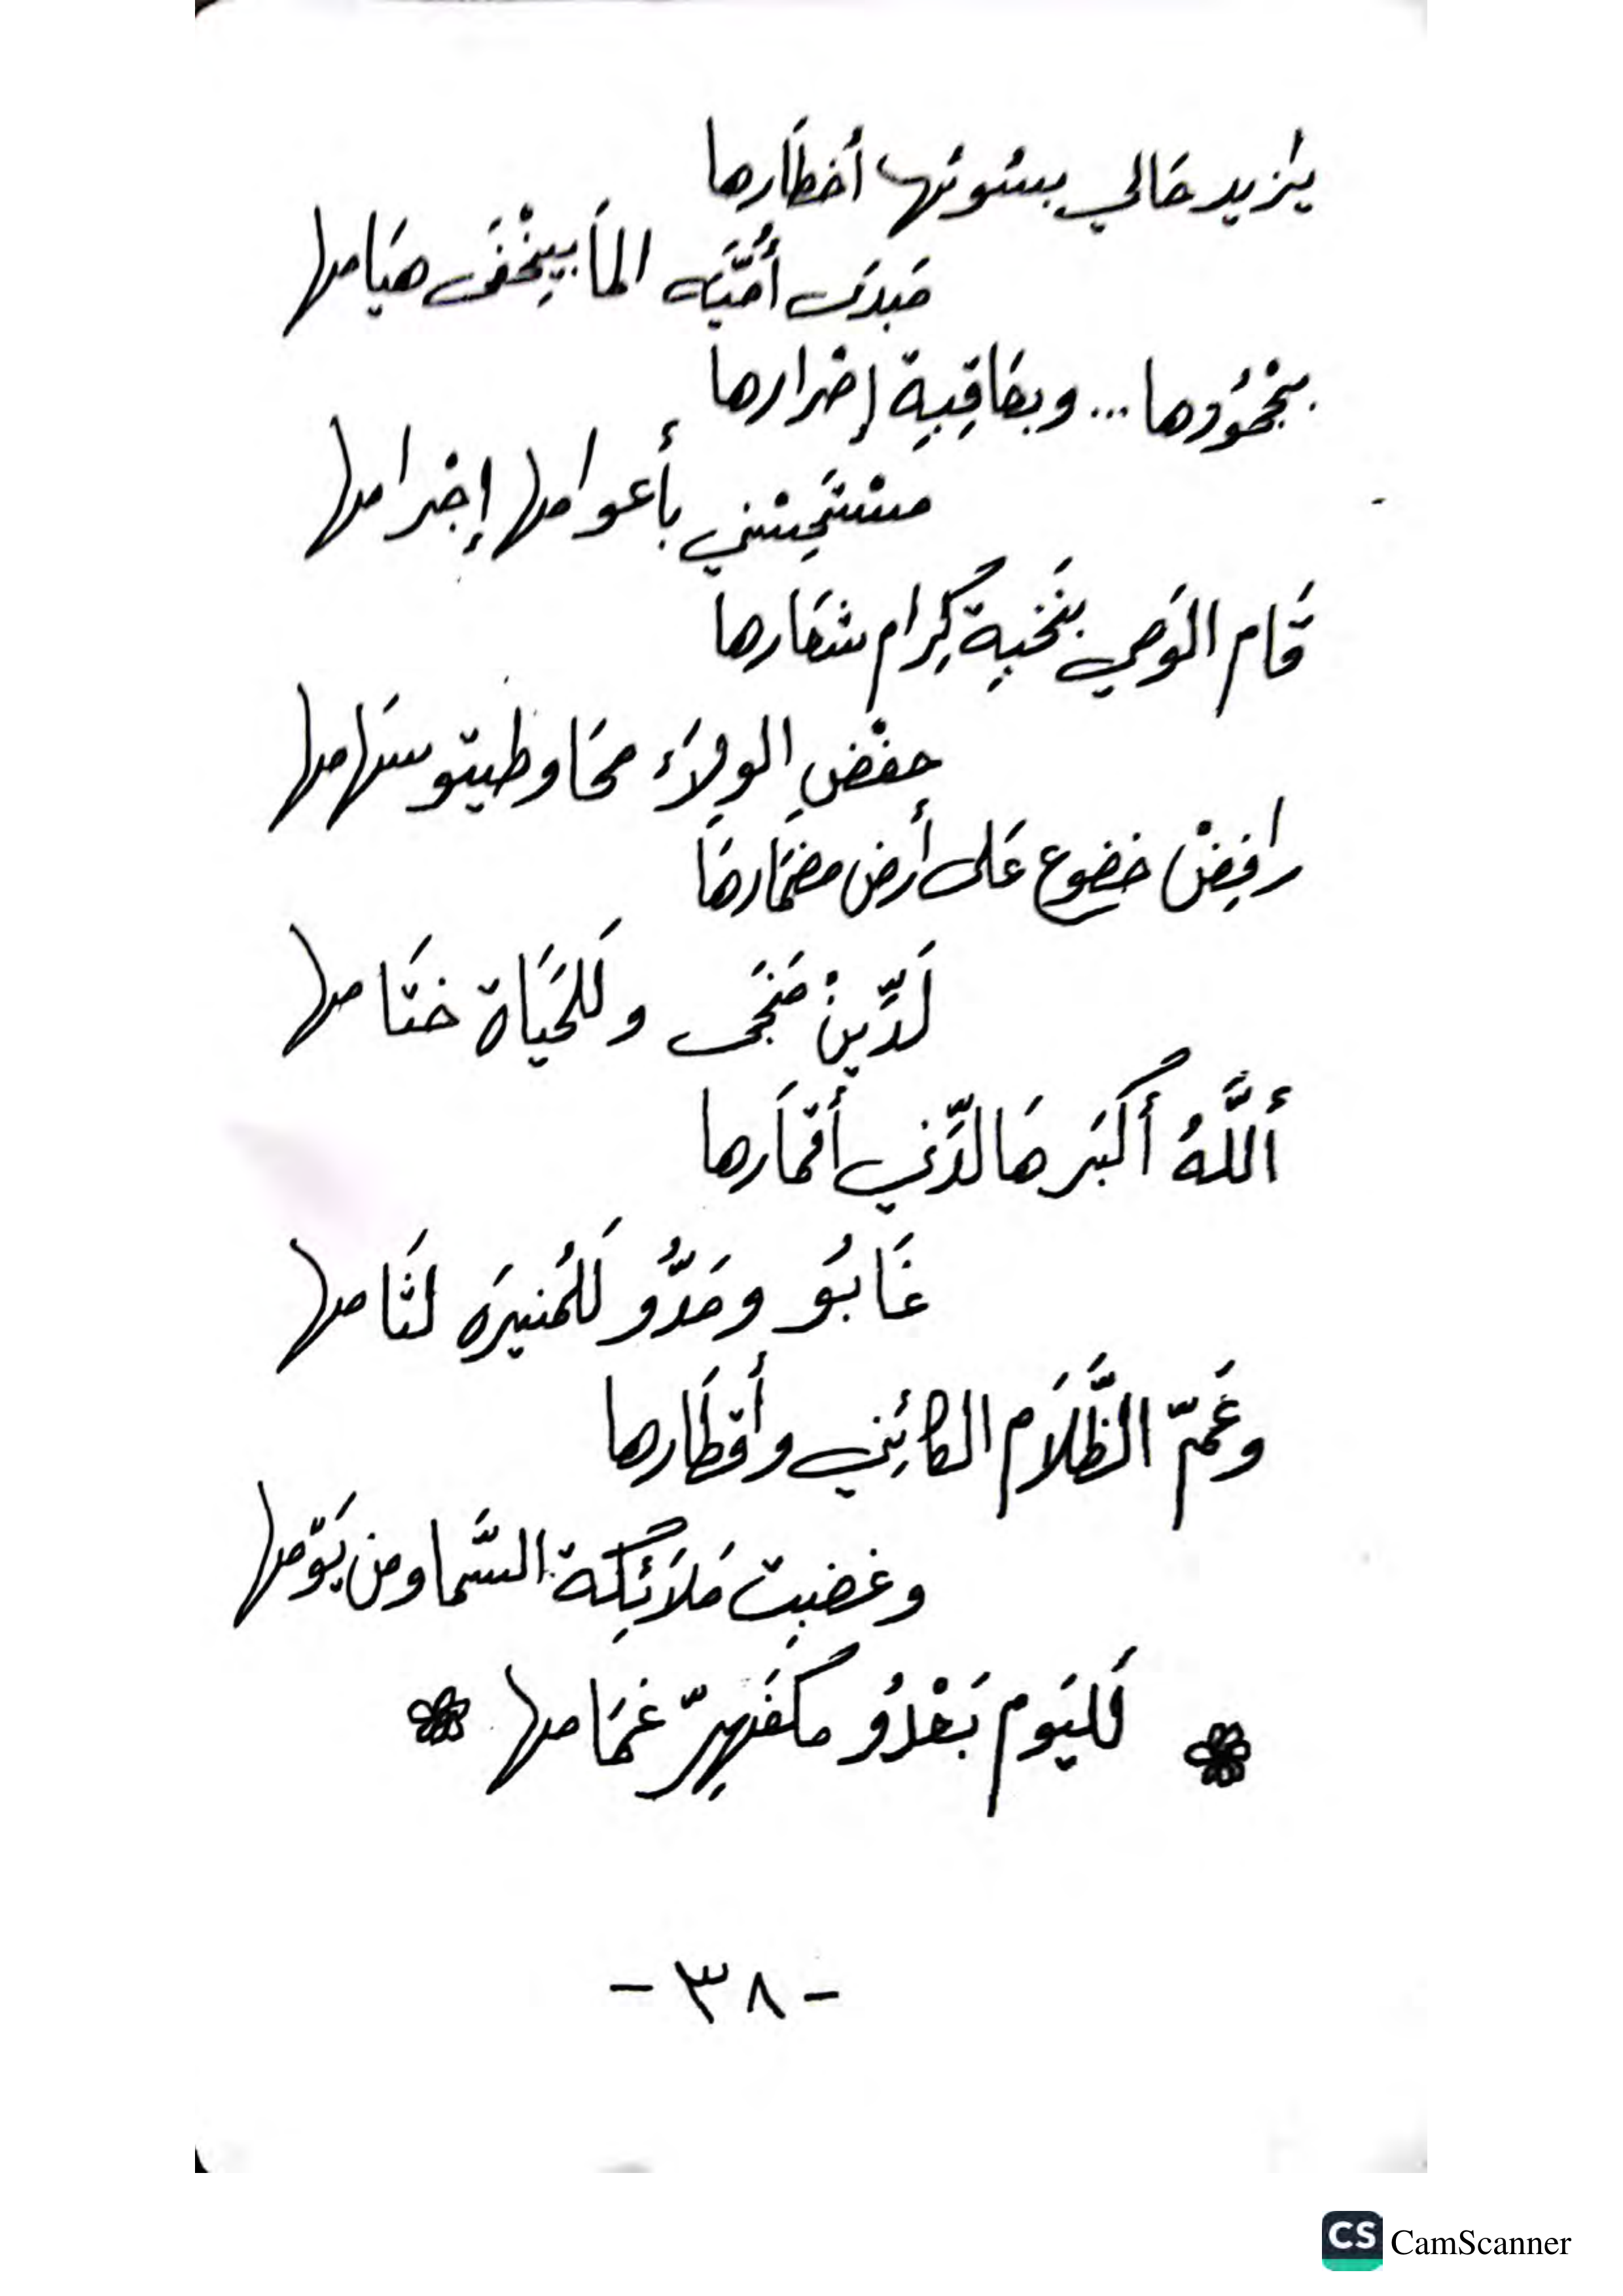 يزيد حَالي بسُوئها أخطَارها
مَبدَى أُمَيَّه المَا بيِخْفَى هيَامها
بجْحُودها ... وبعَاقِبِة إضْرارها
مسْتَحِسْني بأعوامها إجْرامها
قَام الوَصِي بنَخبِة كِرام شعَارها
حفْضِ الولاَء محَاوطيتو سهَامها
رافِضْ خضوع عَلى أرض مضمَارهَا
لَدِّينْ مَنجَى ولَلحَيَاة ختَامها
أللَّهُ أكبَر هَالدِّني أقمَارها
غَابُو ومَدُّو لَلمُنيرَه لثَامها
وعَمّ الظَّلَام الكائِني وأقطَارها
وغضبت مَلَائِكة السَّما ومن يَوّمها
لَليَوم بَعْدُو مكفَهِرّ غمَامها
-٣٨-
CS CamScanner